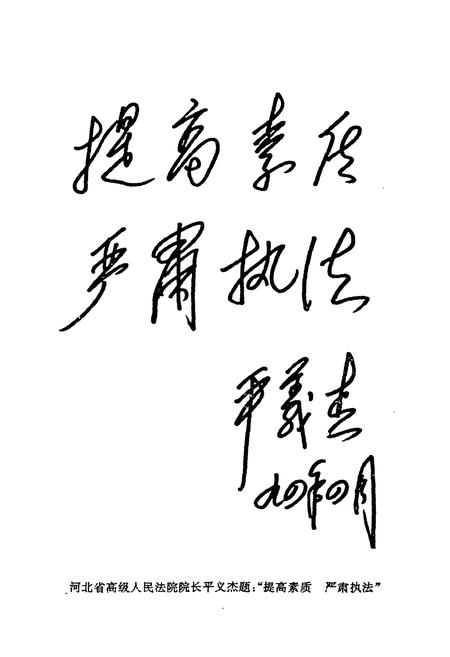 提高素质
严肃执法
平義杰
九四年四月
河北省高级人民法院院长平义杰题:“提高素质　严肃执法”